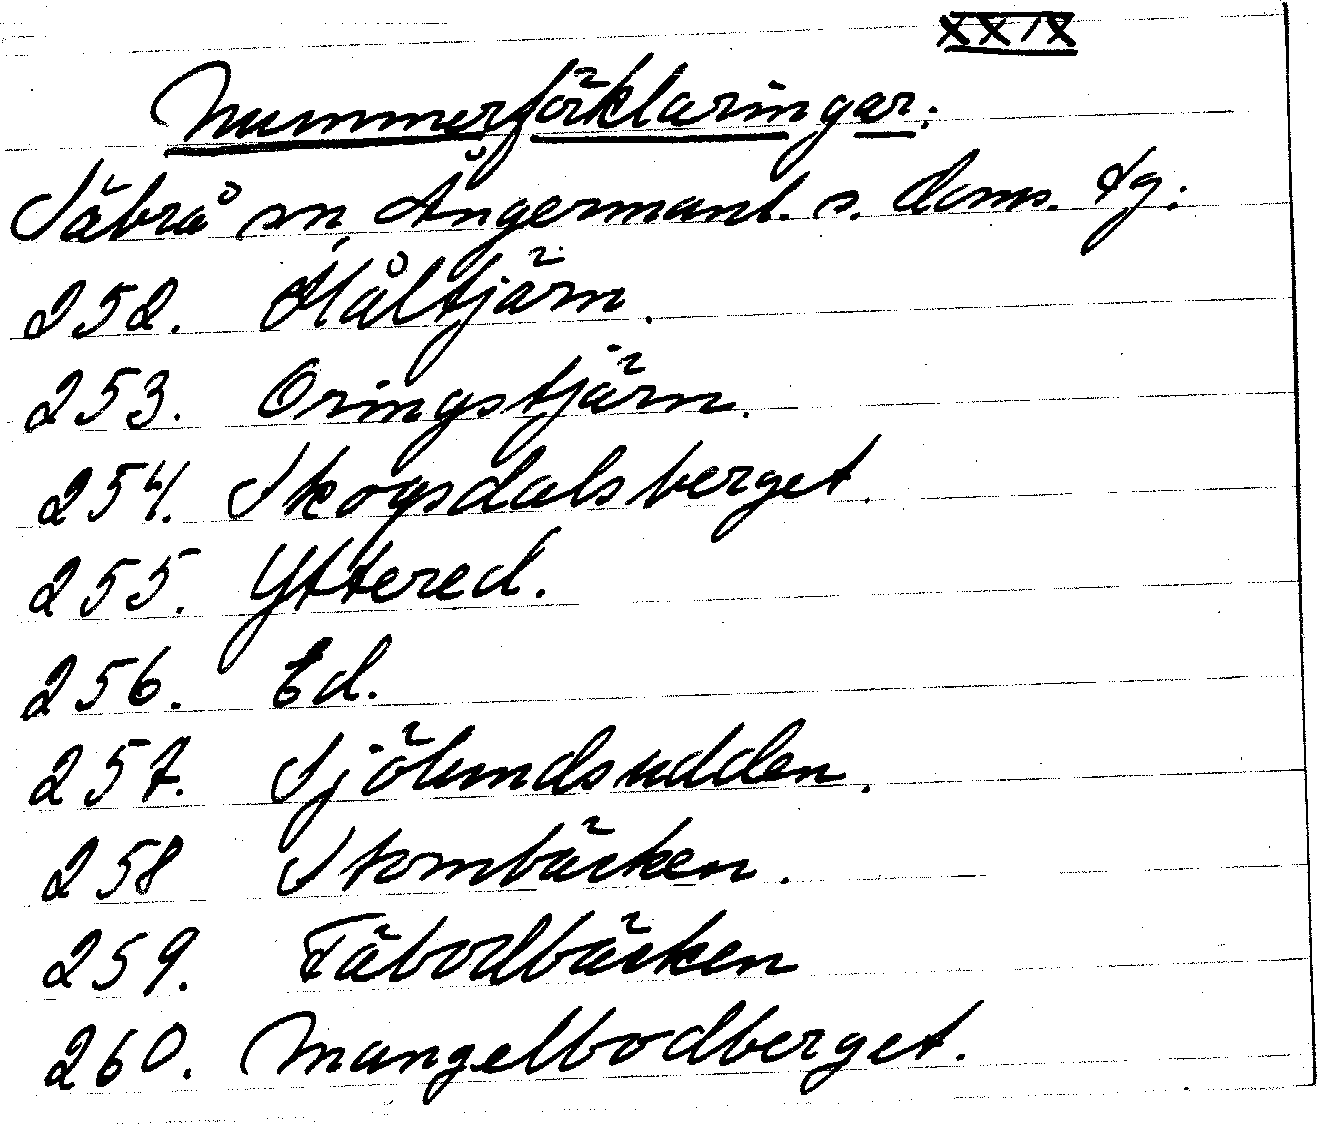 XXIX
Nummerförklaringar:
Säbrå sn, Ångermanl. s. doms. fg:
252. Håltjärn.
253. Oringstjärn.
254. Skogsdalsberget.
255. Yttered.
256. Ed.
257. Sjölundsudden.
258 Skombäcken.
259. Täbodbäcken
260. Mangelbodberget.